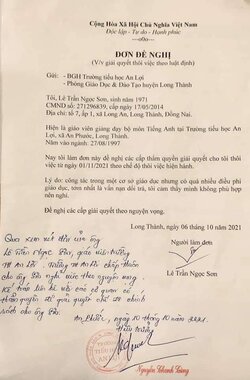 Cộng Hòa Xã Hội Chủ Nghĩa Việt Nam
Độc lập - Tự do - Hạnh phúc
---o0o---
ĐƠN ĐỀ NGHỊ
(V/v giải quyết thôi việc theo luật định)
Gửi: - BGH Trường tiểu học An Lợi
- Phòng Giáo Dục & Đào Tạo huyện Long Thành
Tôi, Lê Trần Ngọc Sơn, sinh năm 1971
CMND số: 271296839, cấp ngày 17/05/2014
Địa chỉ: tổ 7, ấp 1, xã Long An, Long Thành, Đồng Nai.
Hiện là giáo viên giảng dạy bộ môn Tiếng Anh tại Trường tiểu học An
Lợi, xã An Phước, Long Thành.
Năm vào ngành 27/08/1997
Nay tôi làm đơn này đề nghị các cấp thẩm quyền giải quyết cho tôi thôi
việc từ ngày 01/11/2021 theo chế độ thôi việc hiện hành.
Lý do: công tác trong một cơ sở giáo dục nhưng có quá nhiều điều phi
giáo dục, tởm nhất là vấn nạn dối trá, tôi cảm thấy mình không phù hợp
nên nghỉ.
Đề nghị các cấp giải quyết theo nguyện vọng.
Long Thành, ngày 06 tháng 10 năm 2021
Người làm đơn
Lê Trần Ngọc Sơn
Qua xem xét đơn của ông
Lê Trần Ngọc Sơn, giáo viên trường
TH An Lợi. Trường TH An Lợi chấp thuận
cho ông Sơn nghỉ việc theo nguyện vọng.
Kính trình lên các cơ quan có
thẩm quyền để giải quyết chế độ chính
sách cho ông Sơn.
An Phước, ngày 10 tháng 10 năm 2021
Hiệu trưởng
Nguyễn Khánh Giang